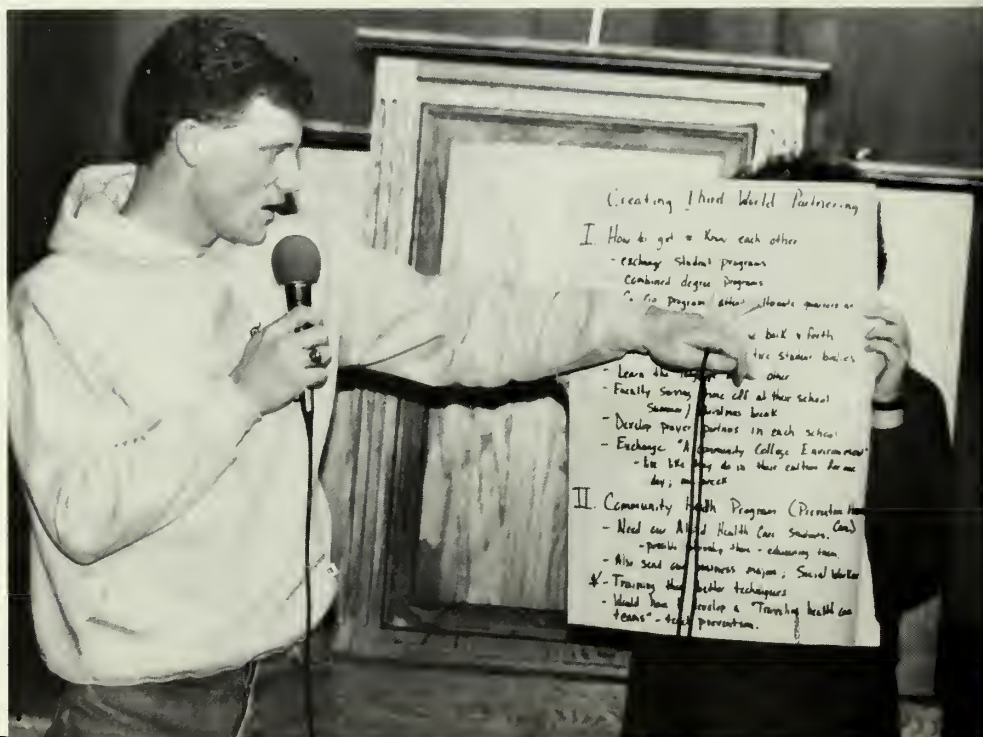 Creating Third World Partnering
I. How to get to know each other
- exchange student programs
combined degree programs
program alternate quarters or
back & forth
student bodies
- Learn the other
- Faculty time off at their school
Summer / Christmas break
- Develop prayer partners in each school
- Exchange "A Community College Environment"
- live like they do in their culture for one
day; one week
II. Community Health Program (Prevention
Care)
- Need our Allied Health Care Students.
- possible there - educating them.
- Also send our business majors; Social Worker
* - Training better techniques
- Would develop a "Traveling health care
teams" - teach prevention.